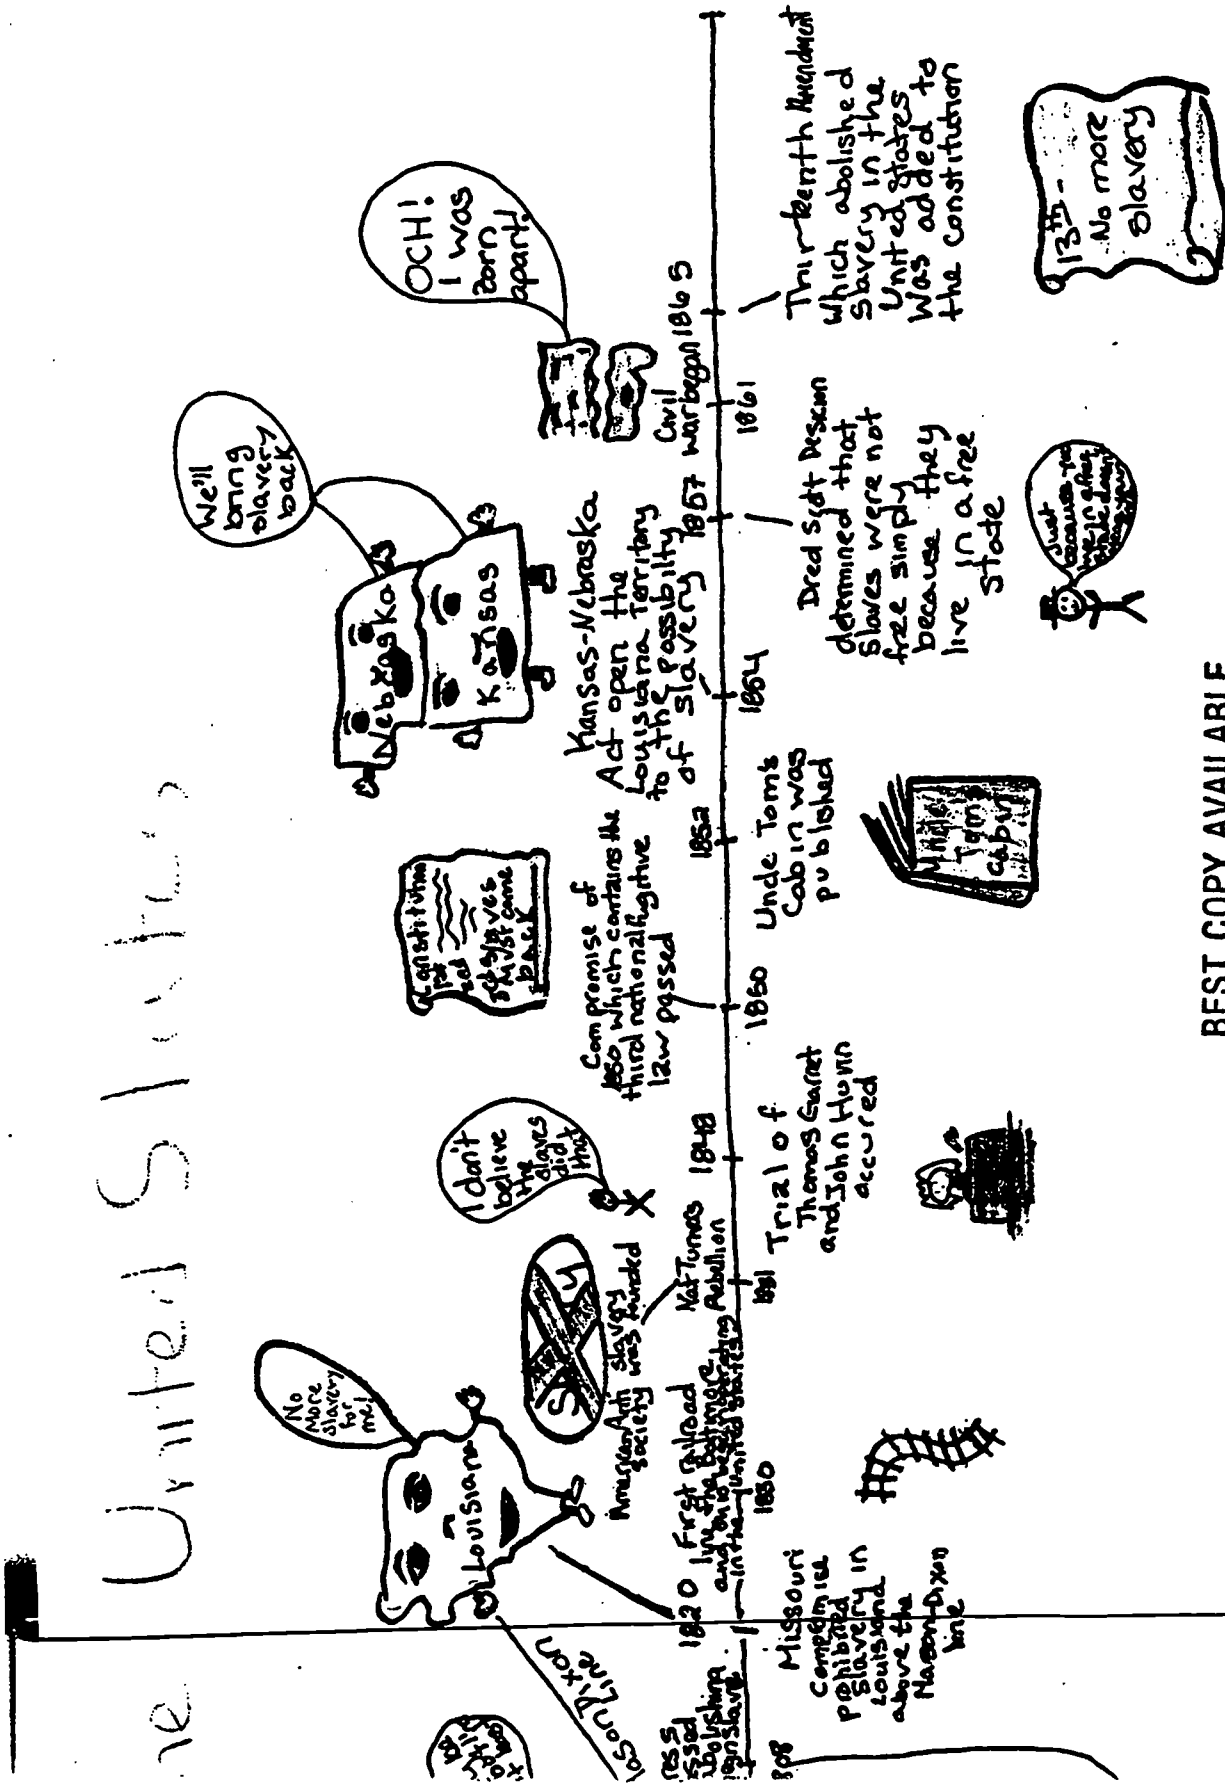 United States
No
More
slavery
for
me!
Louisiana
Mason Dixon
Line
1820
Missouri
Compromise
prohibited
slavery in
Louisiana
above the
Mason-Dixon
line
First railroad
line the Baltimore
and Ohio began operating
in the United States
1830
American Anti slavery
society was founded
S
y
Nat Turners
Rebellion
1831
I don't
believe
the
slaves
did
that
1848
Trial of
Thomas Garret
and John Hunn
accured
Compromise of
1850 which contains the
third national fugitive
law passed
1850
Constitution
slaves
must come
back
1852
Uncle Tom's
Cabin was
published
Uncle
Tom's
Cabin
Kansas-Nebraska
Act open the
Louisiana Territory
to the possibilty
of slavery
1854
Nebraska
Kansas
We'll
bring
slavery
back
1857
Dred Scott Descion
determined that
slaves were not
free simply
because they
live in a free
state
Just
because you
live in a free
state doesn't
mean your
Civil
war began
1861
OCH!
I was
torn
apart!
1865
Thirteenth Amendment
which abolished
slavery in the
United States
was added to
the constitution
13th-
No more
slavery
BEST COPY AVAILABLE